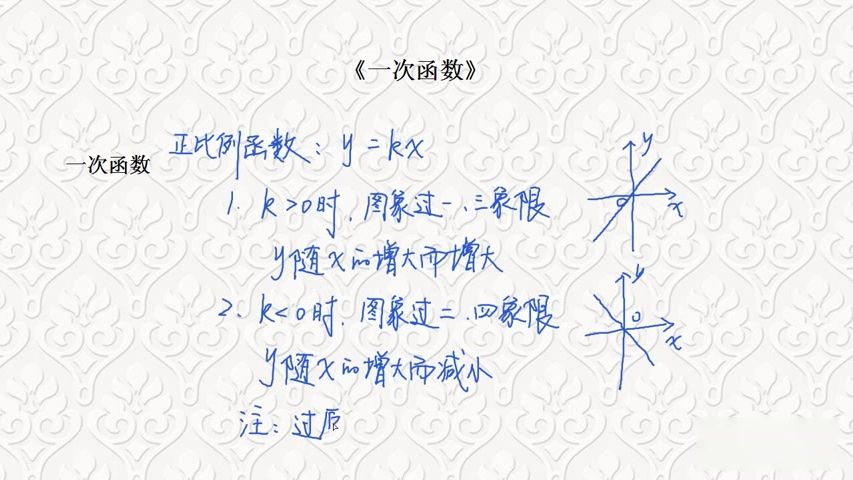 《一次函数》
一次函数
正比例函数：y=kx
1. k>0时，图象过一、三象限
y随x的增大而增大
2. k<0时，图象过二、四象限
y随x的增大而减小
注：过
y
O
x
y
O
x